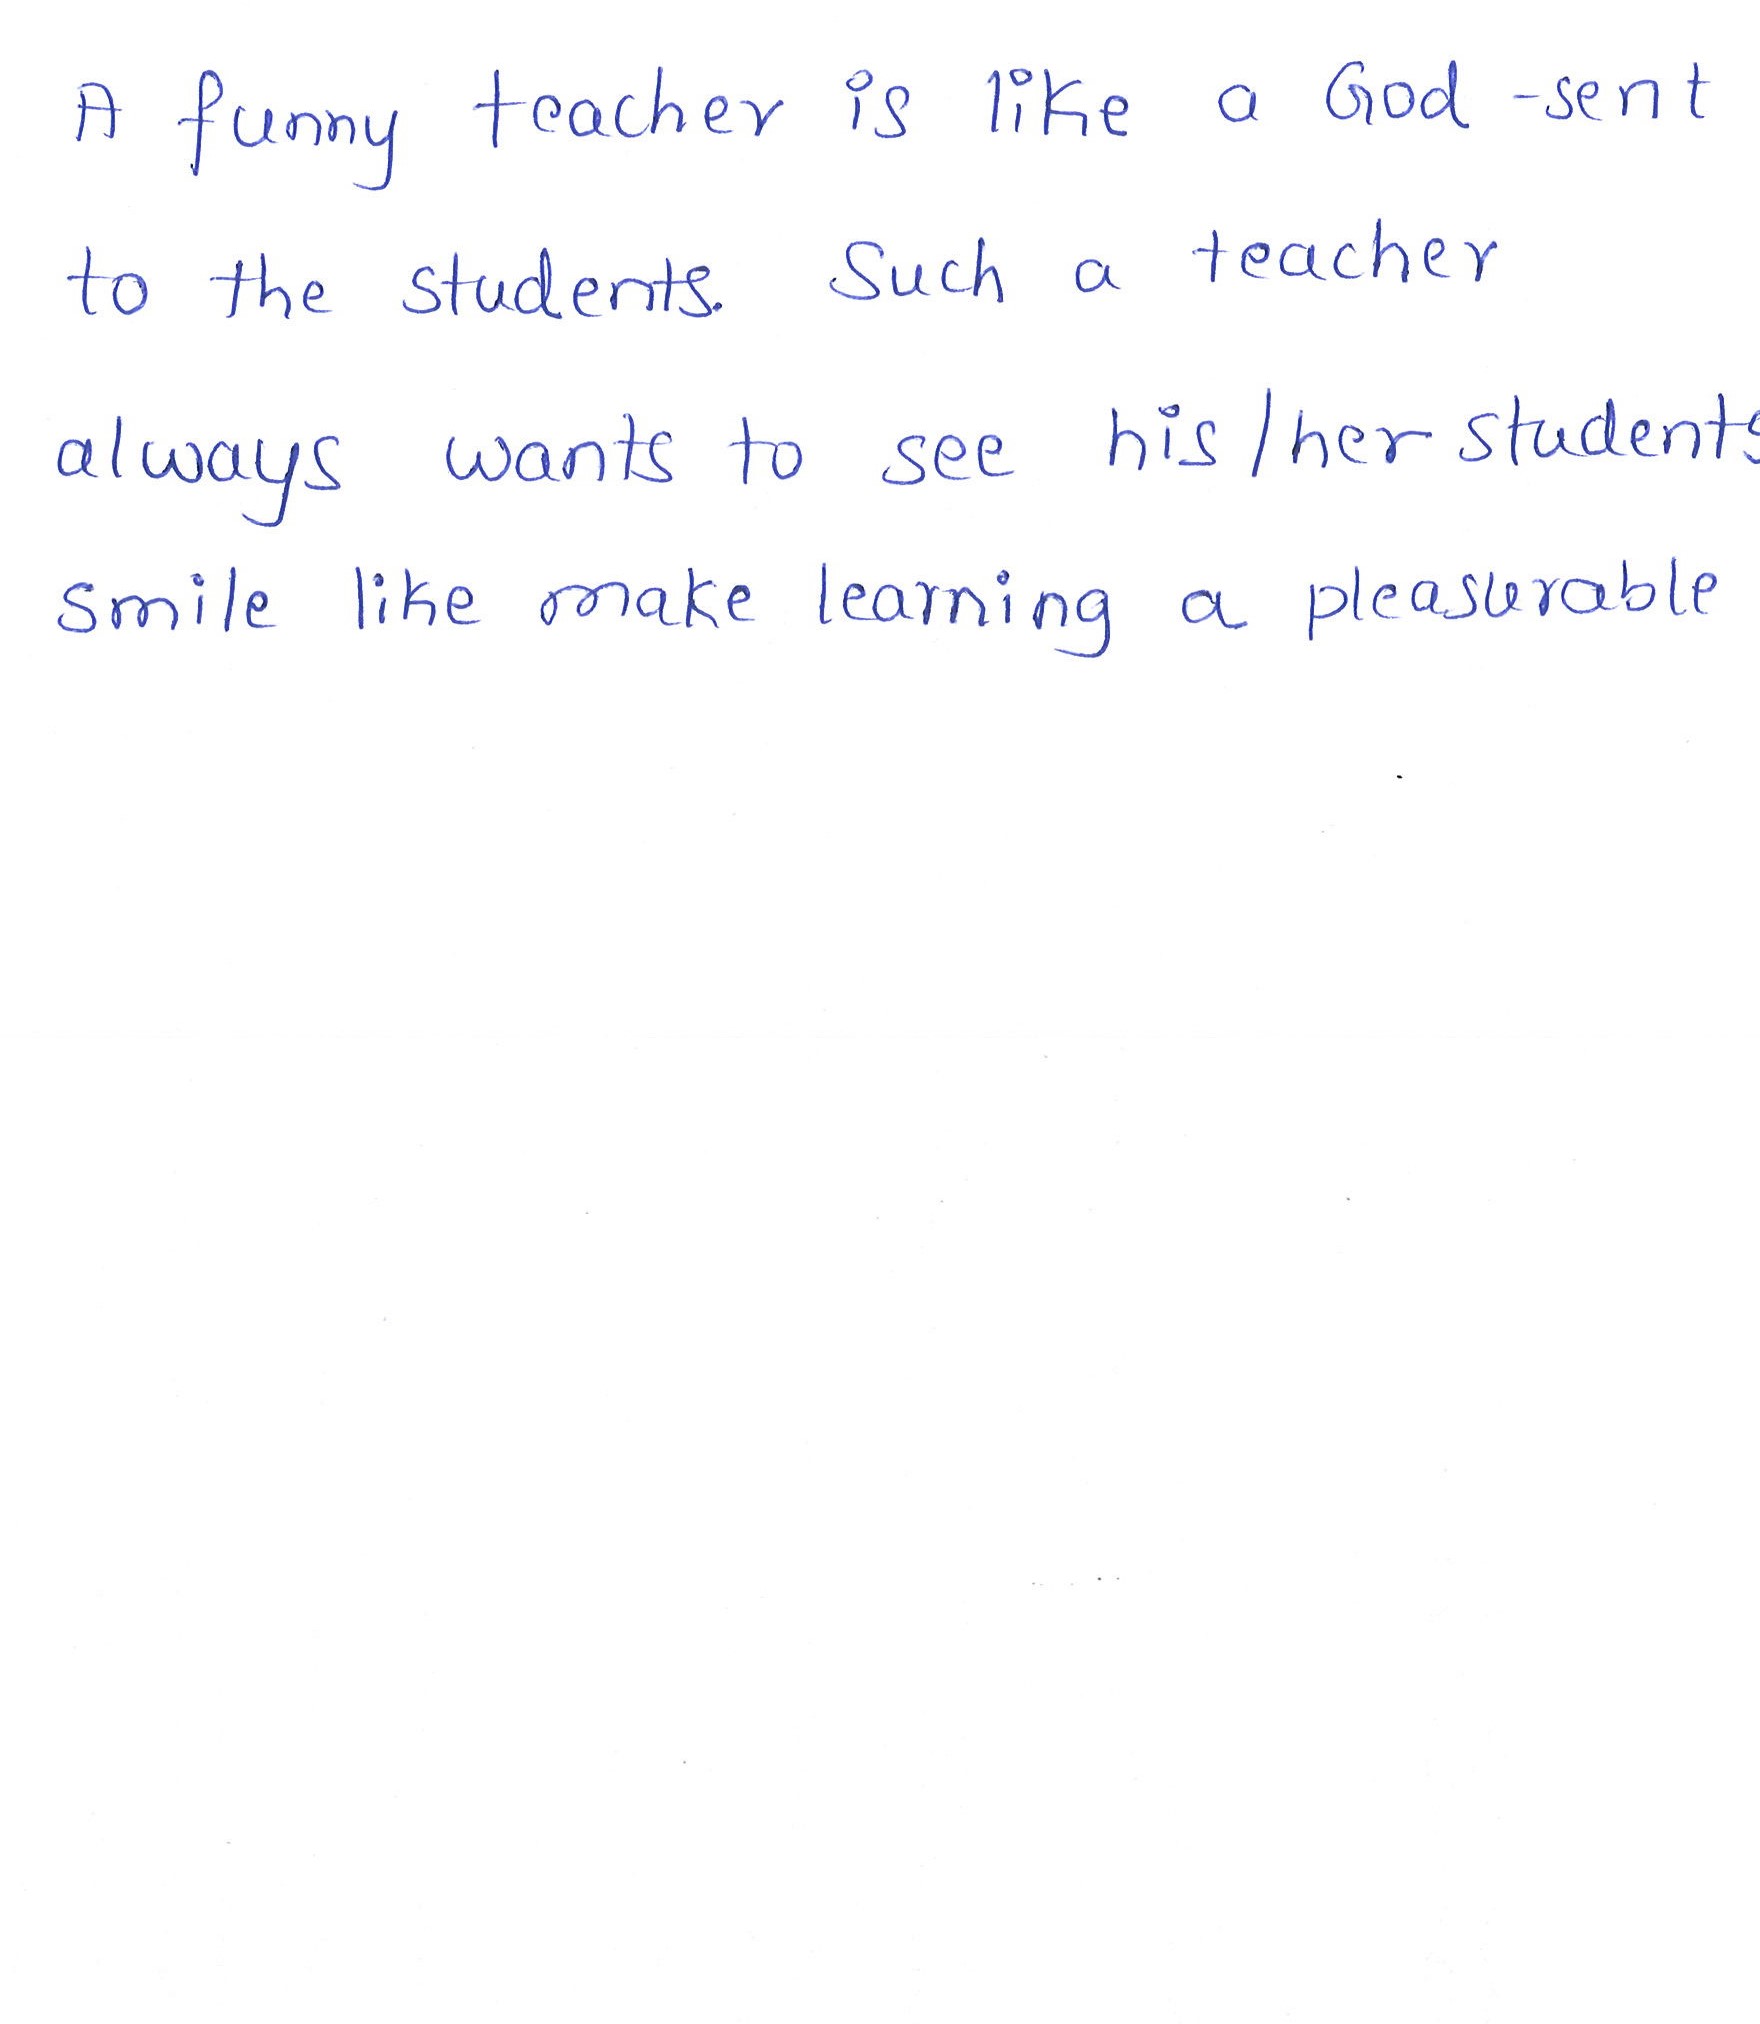 A funny teacher is like a God-sent
to the students. Such a teacher
always wants to see his/her students
smile like make learning a pleasurable